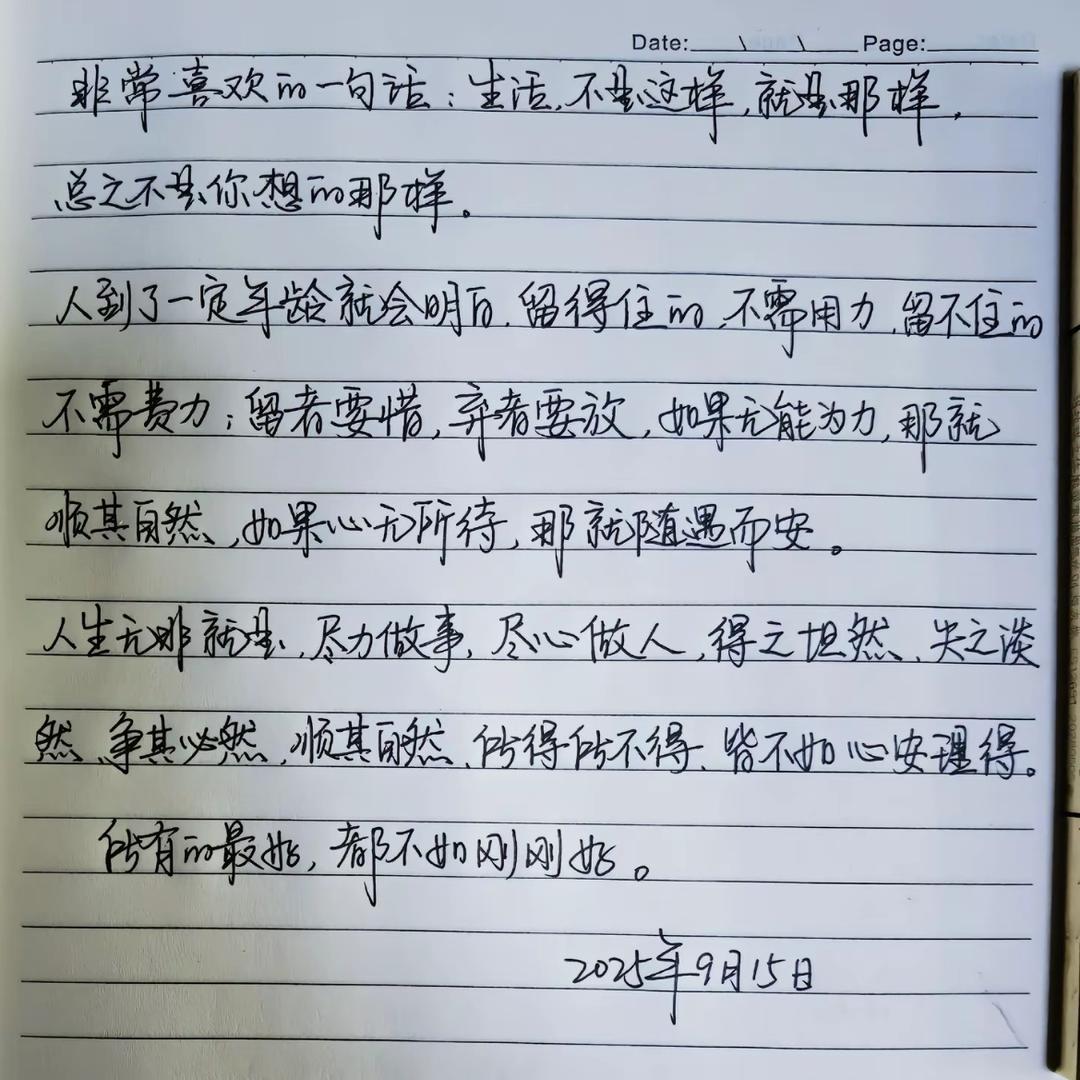 Date:____\____\____ Page:________
非常喜欢的一句话：生活，不是这样，就是那样，
总之不是你想的那样。
人到了一定年龄就会明白，留得住的，不需用力，留不住的
不需费力；留者要惜，弃者要放，如果无能为力，那就
顺其自然，如果心无所待，那就随遇而安。
人生无非就是，尽力做事，尽心做人，得之坦然、失之淡
然、争其必然，顺其自然、所得所不得、皆不如心安理得。
所有的最好，都不如刚刚好。
2025年9月15日